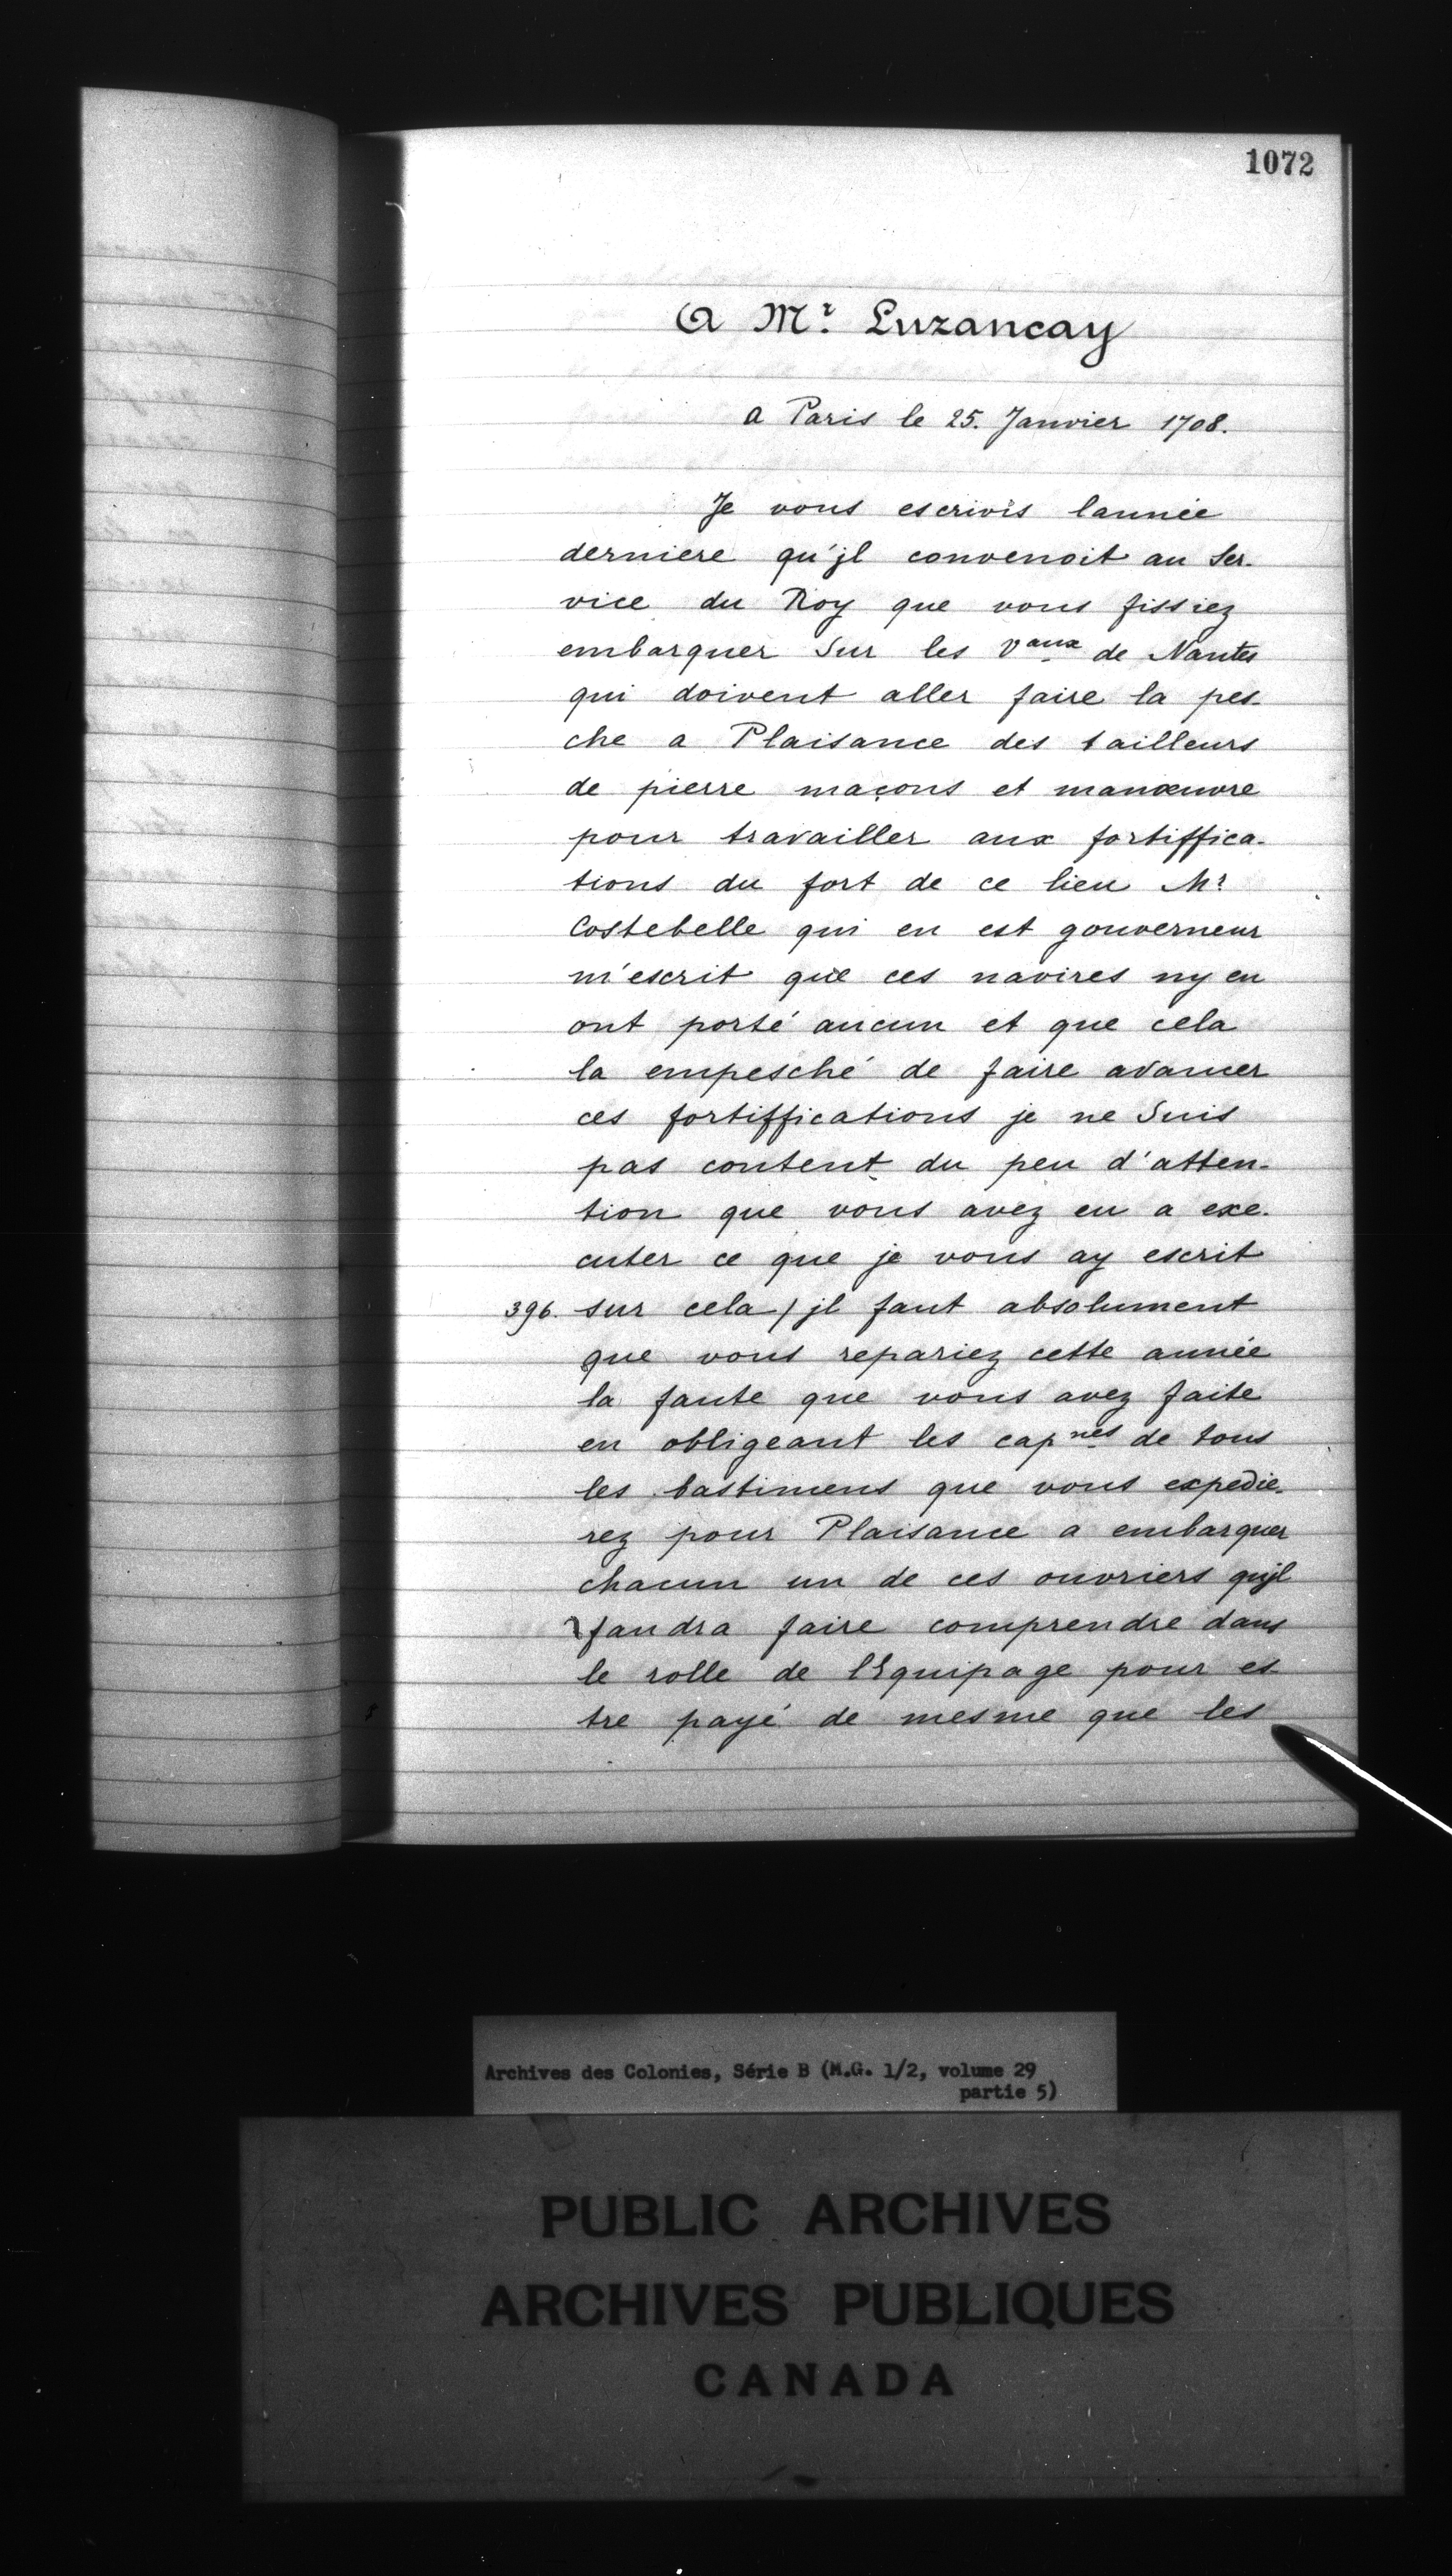 1072
A Mr. Luzancay
a Paris le 25. Janvier 1708.
Je vous escrivis lannée
derniere qu'jl convenoit au Ser-
vice du Roy que vous fissiez
embarquer Sur les Vaux de Nantes
qui doivent aller faire la pes-
che a Plaisance des tailleurs
de pierre maçons et manœuvre
pour travailler aux fortiffica-
tions du fort de ce lieu Mr
Costebelle qui en est gouverneur
m'escrit que ces navires ny en
ont porté aucun et que cela
la empesché de faire avancer
ces fortiffications je ne Suis
pas content du peu d'atten-
tion que vous avez eu a exe-
cuter ce que je vous ay escrit
396. sur cela / jl faut absolument
que vous repariez cette année
la faute que vous avez faite
en obligeant les capnes de tous
les bastimens que vous expedie-
rez pour Plaisance a embarquer
chacun un de ces ouvriers qujl
faudra faire comprendre dans
le rolle de lEquipage pour es-
tre payé de mesme que les
Archives des Colonies, Série B (M.G. 1/2, volume 29
partie 5)
PUBLIC ARCHIVES
ARCHIVES PUBLIQUES
CANADA